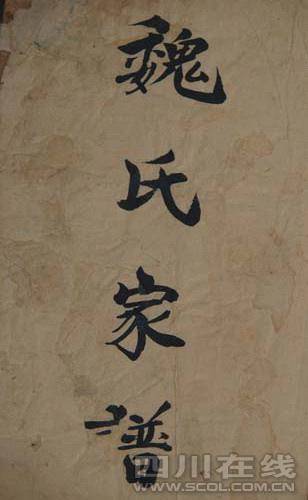 魏氏家譜
四川在线
WWW.SCOL.COM.CN